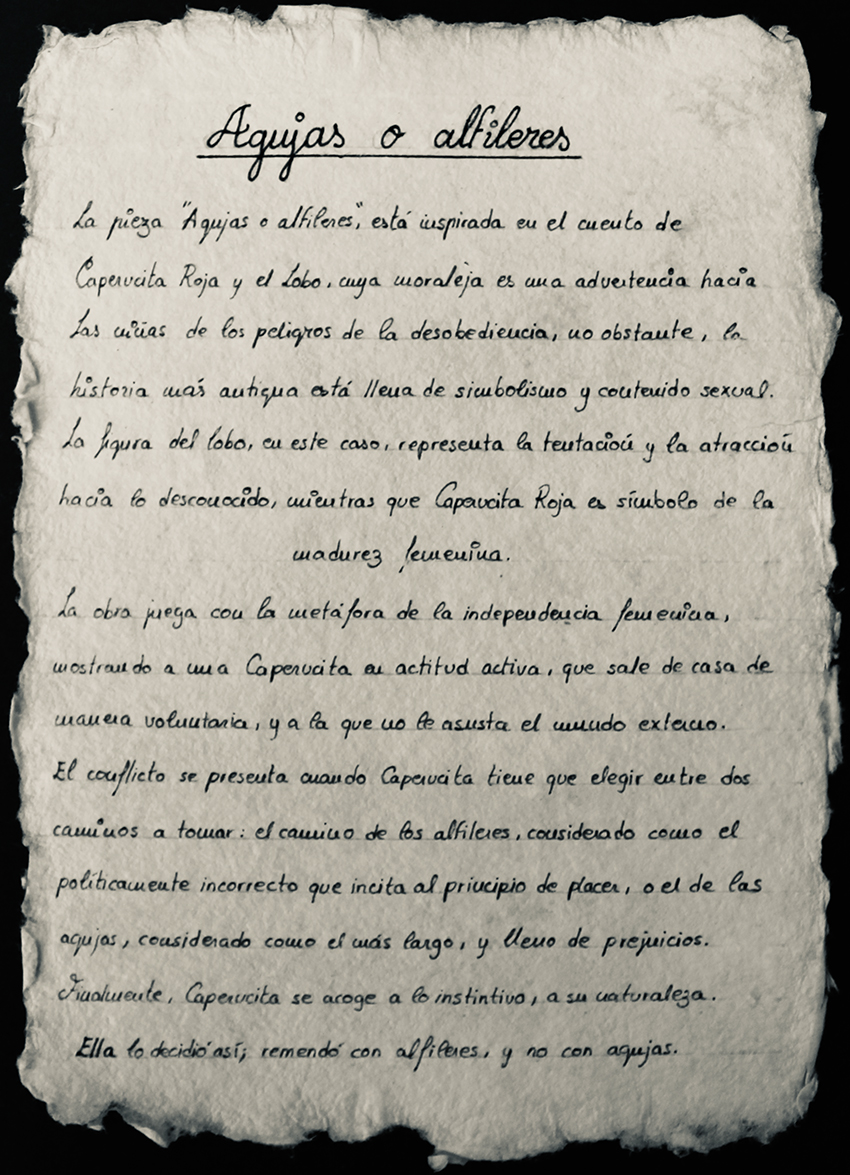 Agujas o alfileres
La pieza "Agujas o alfileres", está inspirada en el cuento de
Caperucita Roja y el Lobo, cuya moraleja es una advertencia hacia
las niñas de los peligros de la desobediencia, no obstante, la
historia más antigua está llena de simbolismo y contenido sexual.
La figura del lobo, en este caso, representa la tentación y la atracción
hacia lo desconocido, mientras que Caperucita Roja es símbolo de la
madurez femenina.
La obra juega con la metáfora de la independencia femenina,
mostrando a una Caperucita en actitud activa, que sale de casa de
manera voluntaria, y a la que no le asusta el mundo externo.
El conflicto se presenta cuando Caperucita tiene que elegir entre dos
caminos a tomar: el camino de los alfileres, considerado como el
políticamente incorrecto que incita al principio de placer, o el de las
agujas, considerado como el más largo, y lleno de prejuicios.
Finalmente, Caperucita se acoge a lo instintivo, a su naturaleza.
Ella lo decidió así; remendó con alfileres, y no con agujas.